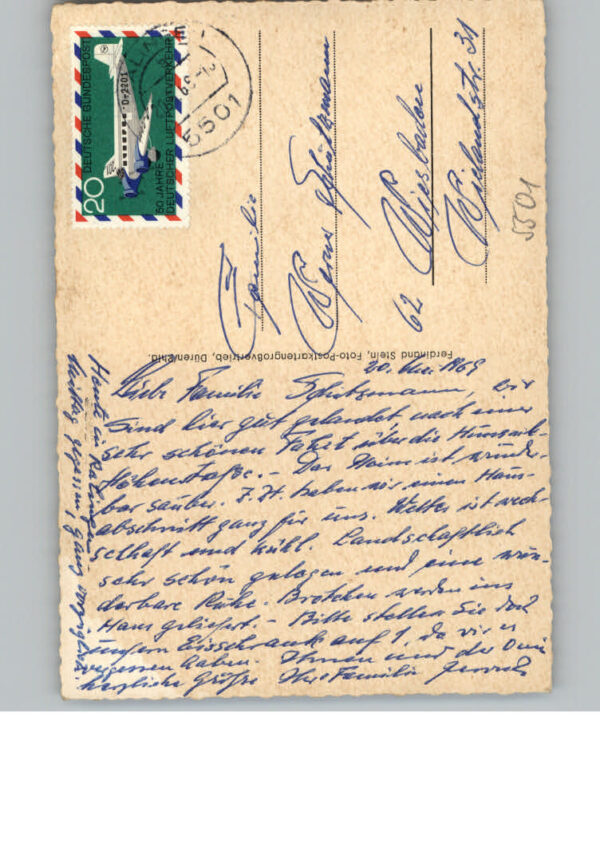 20. Mai 1969
Liebe Familie Schützmann, wir
sind hier gut gelandet, nach einer
sehr schönen Fahrt über die Hunsrück-
Höhenstraße. - Das Heim ist wunder-
bar sauber. Z. Zt. haben wir einen Haus-
abschnitt ganz für uns. Wetter ist wech-
selhaft und kühl. Landschaftlich
sehr schön gelegen und eine wun-
derbare Ruhe. Brötchen werden ins
Haus geliefert. - Bitte stellen Sie doch
unsern Eisschrank auf 1, da wir es
vergessen haben. Ihnen und der Omi
herzliche Grüße Ihre Familie
Heute in
Mittag gegessen, ganz vorzüglich.
Ferdinand Stein, Foto-Postkartengroßvertrieb, Düren/Rhld.
Familie
Werner Schützmann
62 Wiesbaden
Wielandstr. 31
5501
DEUTSCHE BUNDESPOST
20
D-2201
50 JAHRE
DEUTSCHER LUFTPOSTVERKEHR
5501